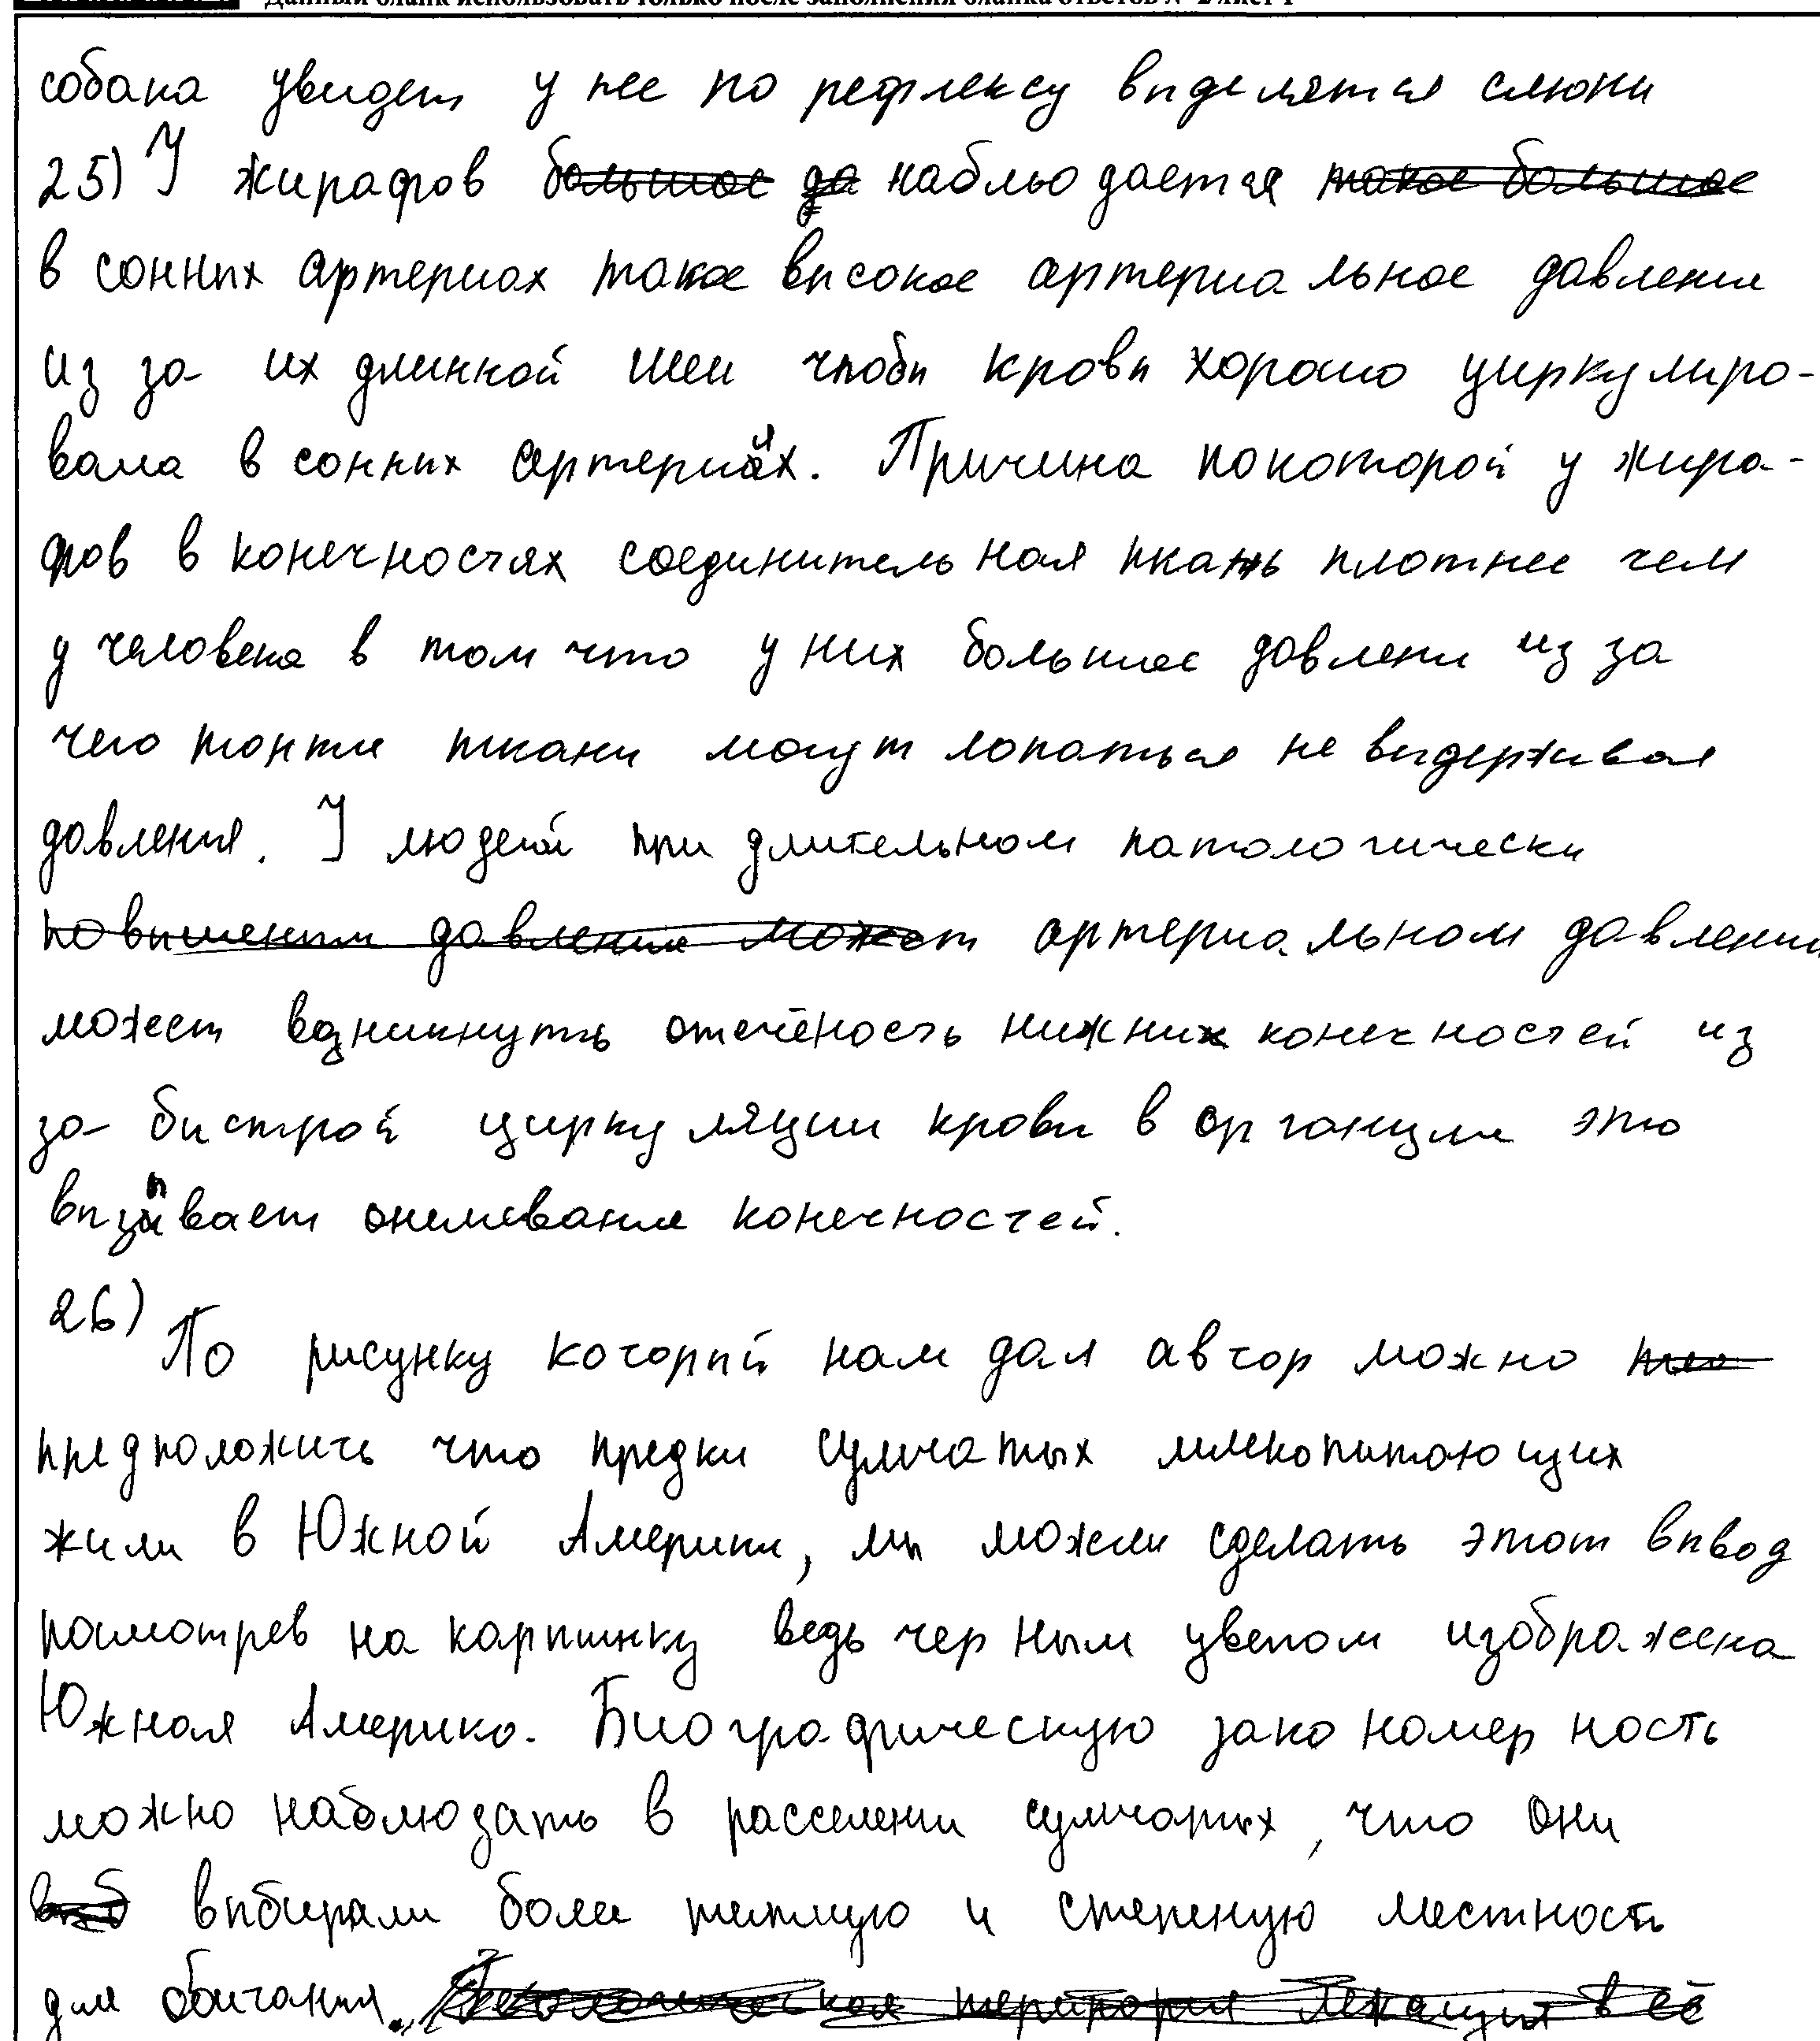 Данный бланк использовать только после заполнения бланка ответов № 2 лист 1
собака увидет у нее по рефлексу выделятся слюни
25) У жирафов большое да наблью дается такое большое
в сонных артериах такое высокое артериальное давлени
из за их длинной шеи чтобы кровь хорошо циркулиро-
вала в сонних артериях. Причина покоторой у жира-
фов в конечностях соединительная ткань плотнее чем
у человека в том что у них большее давлени из за
чего тонкие ткани могут лопаться не выдерживая
давления. У людей при длительном патологически
повышеным давление может артериальном давлении
может возникнуть отечёность нижних конечностей из
за быстрой циркуляции крови в организме это
вызывает онемевание конечностей.
26) По рисунку который нам дал автор можно
предположить что предки сумчатых млекопитающих
жили в Южной Америки, мы можем сделать этот вывод
посмотрев на картинку ведь черным цветом изображена
Южная Америка. Биографическую закономерность
можно наблюдать в расселени сумчатых, что они
выбирали боле теплую и степную местность
для обитания. территория лежащия в её